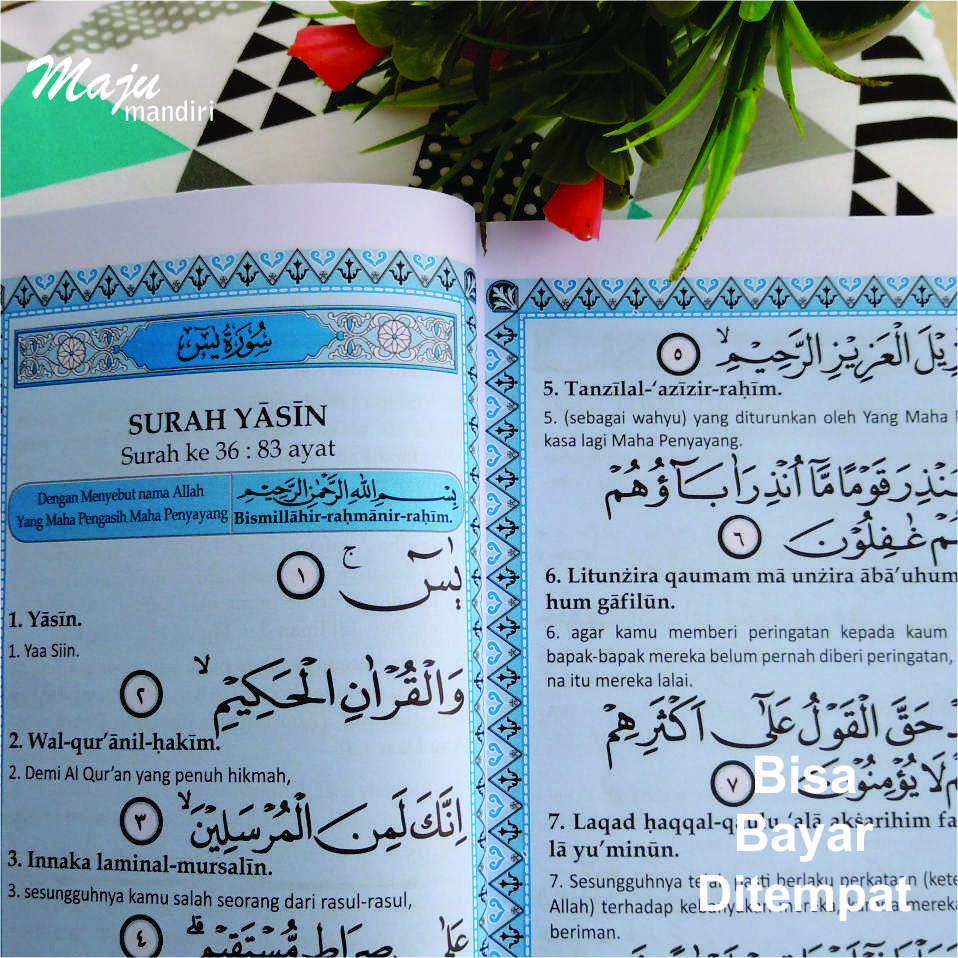 Maju
mandiri
سُوْرَةُ يٰسۤ
SURAH YĀSĪN
Surah ke 36 : 83 ayat
Dengan Menyebut nama Allah
Yang Maha Pengasih Maha Penyayang
بِسْمِ اللّٰهِ الرَّحْمٰنِ الرَّحِيْمِ
Bismillāhir-raḥmānir-raḥīm.
يٰسۤ ۚ ١
1. Yāsīn.
1. Yaa Siin.
وَالْقُرْاٰنِ الْحَكِيْمِۙ ٢
2. Wal-qur’ānil-ḥakīm.
2. Demi Al Qur’an yang penuh hikmah,
اِنَّكَ لَمِنَ الْمُرْسَلِيْنَۙ ٣
3. Innaka laminal-mursalīn.
3. sesungguhnya kamu salah seorang dari rasul-rasul,
عَلٰى صِرَاطٍ مُّسْتَقِيْمٍۗ ٤
الْعَزِيْزِ الرَّحِيْمِۙ ٥
5. Tanzīlal-‘azīzir-raḥīm.
5. (sebagai wahyu) yang diturunkan oleh Yang Maha
kasa lagi Maha Penyayang.
قَوْمًا مَّآ اُنْذِرَ اٰبَاۤؤُهُمْ
غٰفِلُوْنَ ٦
6. Litunżira qaumam mā unżira ābā’uhum
hum gāfilūn.
6. agar kamu memberi peringatan kepada kaum
bapak-bapak mereka belum pernah diberi peringatan,
na itu mereka lalai.
حَقَّ الْقَوْلُ عَلٰٓى اَكْثَرِهِمْ
لَا يُؤْمِنُوْنَ ٧
7. Laqad ḥaqqal-qaulu ‘alā akṡarihim fa
lā yu’minūn.
7. Sesungguhnya telah pasti berlaku perkataan
Allah) terhadap kebanyakan mereka, karena mereka
beriman.
Bisa
Bayar
Ditempat